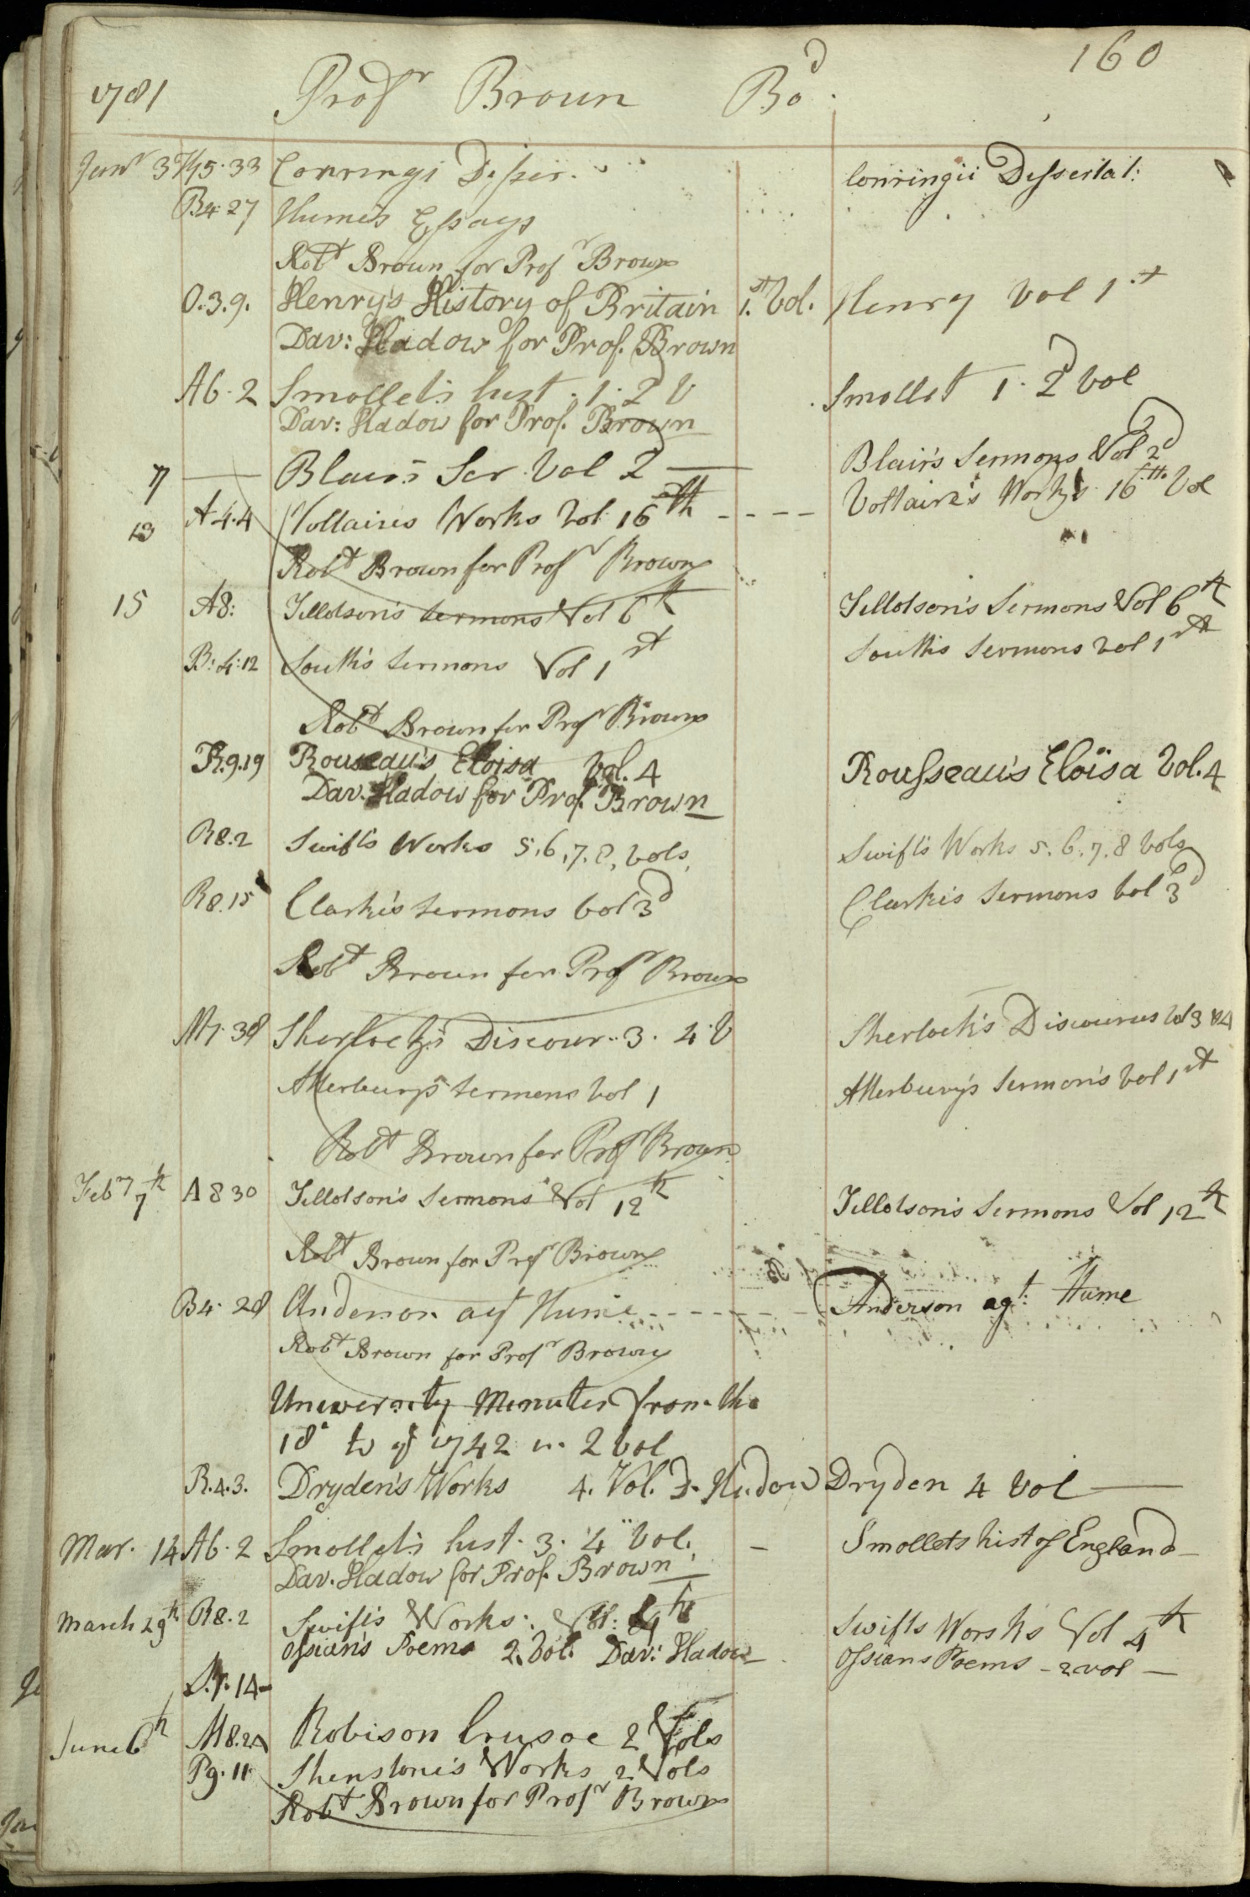 1781 Profr Broun Bod. 160
Conringi Disser. Conringii Dissertat:
B4.27 Hume's Essays
Robt Brown for Profr Brown
O.3.9. Henry's History of Britain 1.st Vol. Henry Vol 1st
Dav: Hadow for Prof. Brown
A6.2 Smollet's hist. 1. 2d V Smollet 1. 2d Vol
Dav: Hadow for Prof. Brown
7 Blair's Ser. Vol 2d Blair's Sermons Vol 2d
13 A4.4 Voltaires Works Vol 16th Voltaire's Works 16th Vol
Robt Brown for Profr Brown
15 A8: Tillotson's Sermons Vol 6th Tillotson's Sermons Vol 6th
B:4:12 South's Sermons Vol 1st South's Sermons Vol 1st
Robt Brown for Profr Brown
R.9.19 Rousseau's Eloisa Vol. 4 Rousseau's Eloïsa Vol. 4
Dav. Hadow for Prof. Brown
R8.2 Swift's Works 5.6.7.8. Vols. Swift's Works 5.6.7.8 Vols
R8.15 Clarke's Sermons Vol 3d Clarke's Sermons Vol 3d
Robt Brown for Profr Brown
M7.38 Sherlock's Discour. 3. 4 V Sherlock's Discourses Vol 3 & 4
Atterbury's Sermons Vol 1 Atterbury's Sermon's Vol 1st
Robt Brown for Profr Brown
Febry 7th A 8 30 Tillotson's Sermons Vol 12th Tillotson's Sermons Vol 12th
Robt Brown for Profr Brown
B4.28 Anderson agt Hume Anderson agt: Hume
Robt Brown for Profr Brown
University Minutes from the
1742 in 2 Vol
R.4.3. Dryden's Works 4. Vol. D. Hadow Dryden 4 Vol
Mar. 14 A6.2 Smollet's hist. 3. 4 Vol. Smollets hist of England
Dav. Hadow for Prof. Brown
March 29th R8.2 Swift's Works: Vol: 4th Swifts Works Vol 4th
Ossian's Poems 2. Vol. Dav: Hadow Ossians Poems - 2 vol -
June 6th Robison Crusoe 2 Vols
P9.11 Shenstone's Works 2 Vols
Robt Brown for Profr Brown